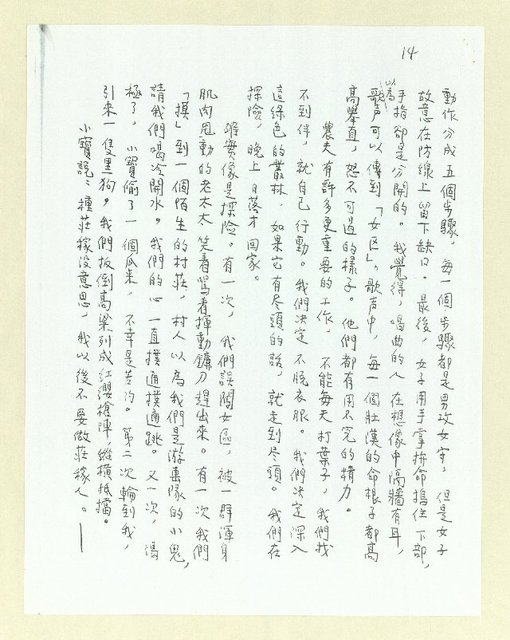 14
動作分成五個步驟，每一個步驟都是男攻女守，但是女子
故意在防線上留下缺口。最後，女子用手掌拚命摀住下部，
手指卻是分開的。我覺得，唱曲的人在想像中隔牆有耳，
以為歌声可以傳到「女区」。歌声中，每一個壯漢的命根子都高
高舉直，怒不可遏的樣子。他們都有用不完的精力。
農夫有許多更重要的工作，不能每天打葉子，我們找
不到伴，就自己行動。我們決定不脫衣服。我們決定深入
這綠色的叢林，如果它有尽頭的話，就走到尽頭。我們在
探險，晚上日落才回家。
確實像是探險。有一次，我們誤闖女區，被一群渾身
肌肉甩動的老太太笑着罵着揮動鐮刀趕出來。有一次我們
「摸」到一個陌生的村莊，村人以為我們是游擊隊的小鬼，
請我們喝冷開水。我們的心一直撲通撲通跳。又一次，渴
極了，小寶偷了一個瓜來，不幸是苦的。第二次輪到我，
引來一隻黑狗。我們扳倒高梁列成紅纓槍陣，縱橫抵擋。
小寶說：種莊稼沒意思，我以後不要做莊稼人。——